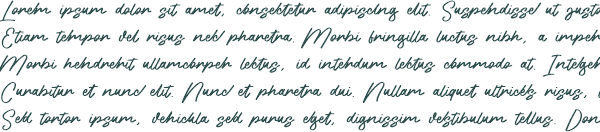 Lorem ipsum dolor sit amet, consectetur adipiscing elit. Suspendisse ut justo
Etiam tempor vel risus nec pharetra. Morbi fringilla luctus nibh, a imper
Morbi hendrerit ullamcorper lectus, id interdum lectus commodo at. Integer
Curabitur et nunc elit. Nunc et pharetra dui. Nullam aliquet ultrices risus,
Sed tortor ipsum, vehicula sed purus eget, dignissim vestibulum tellus. Don